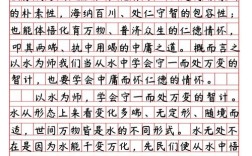 的朴素性，海纳百川、处仁守智的包容性；
也能体悟化育万物、普济众生的仁德情怀，
叩其两端、执中用中的中庸之道。概而言之
以水为师我们当从水中学会守一而处万变的
智计，也要学会中庸而怀仁德的情怀。
以水为师，学会守一而处万变的智计。
水从形态上来看变化多端、无定形、随境而
造，世间万物皆是水的不同形式。水无处不
在是因为水能处万变，先民们便从水中悟